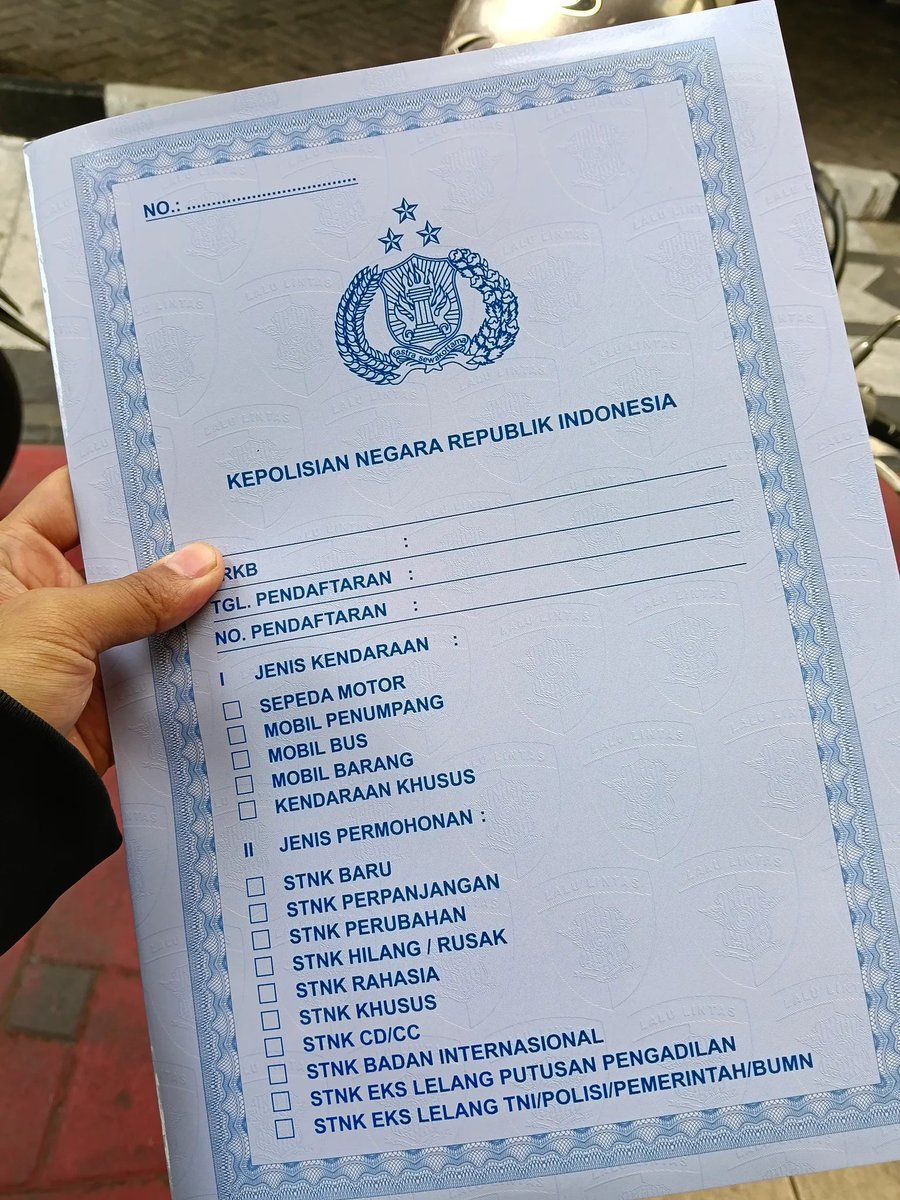 NO.: ................................
rastra sewakottama
KEPOLISIAN NEGARA REPUBLIK INDONESIA
RKB :
TGL. PENDAFTARAN :
NO. PENDAFTARAN :
I JENIS KENDARAAN :
SEPEDA MOTOR
MOBIL PENUMPANG
MOBIL BUS
MOBIL BARANG
KENDARAAN KHUSUS
II JENIS PERMOHONAN :
STNK BARU
STNK PERPANJANGAN
STNK PERUBAHAN
STNK HILANG / RUSAK
STNK RAHASIA
STNK KHUSUS
STNK CD/CC
STNK BADAN INTERNASIONAL
STNK EKS LELANG PUTUSAN PENGADILAN
STNK EKS LELANG TNI/POLISI/PEMERINTAH/BUMN
LALU LINTAS